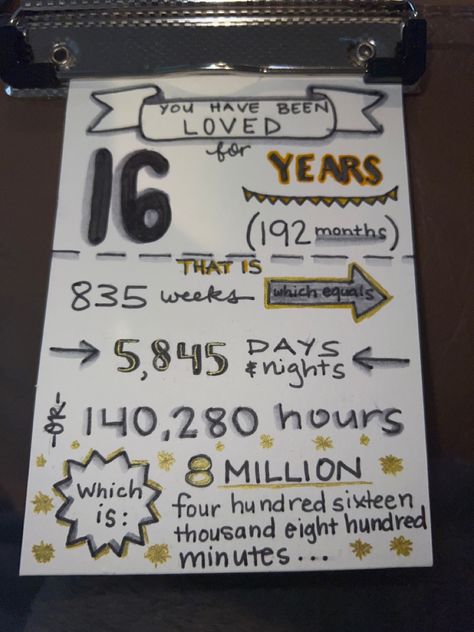 YOU HAVE BEEN
LOVED
for
16 YEARS
(192 months)
THAT IS
835 weeks which equals
5,845 DAYS
& nights
-OR- 140,280 hours
Which
is:
8 MILLION
four hundred sixteen
thousand eight hundred
minutes...